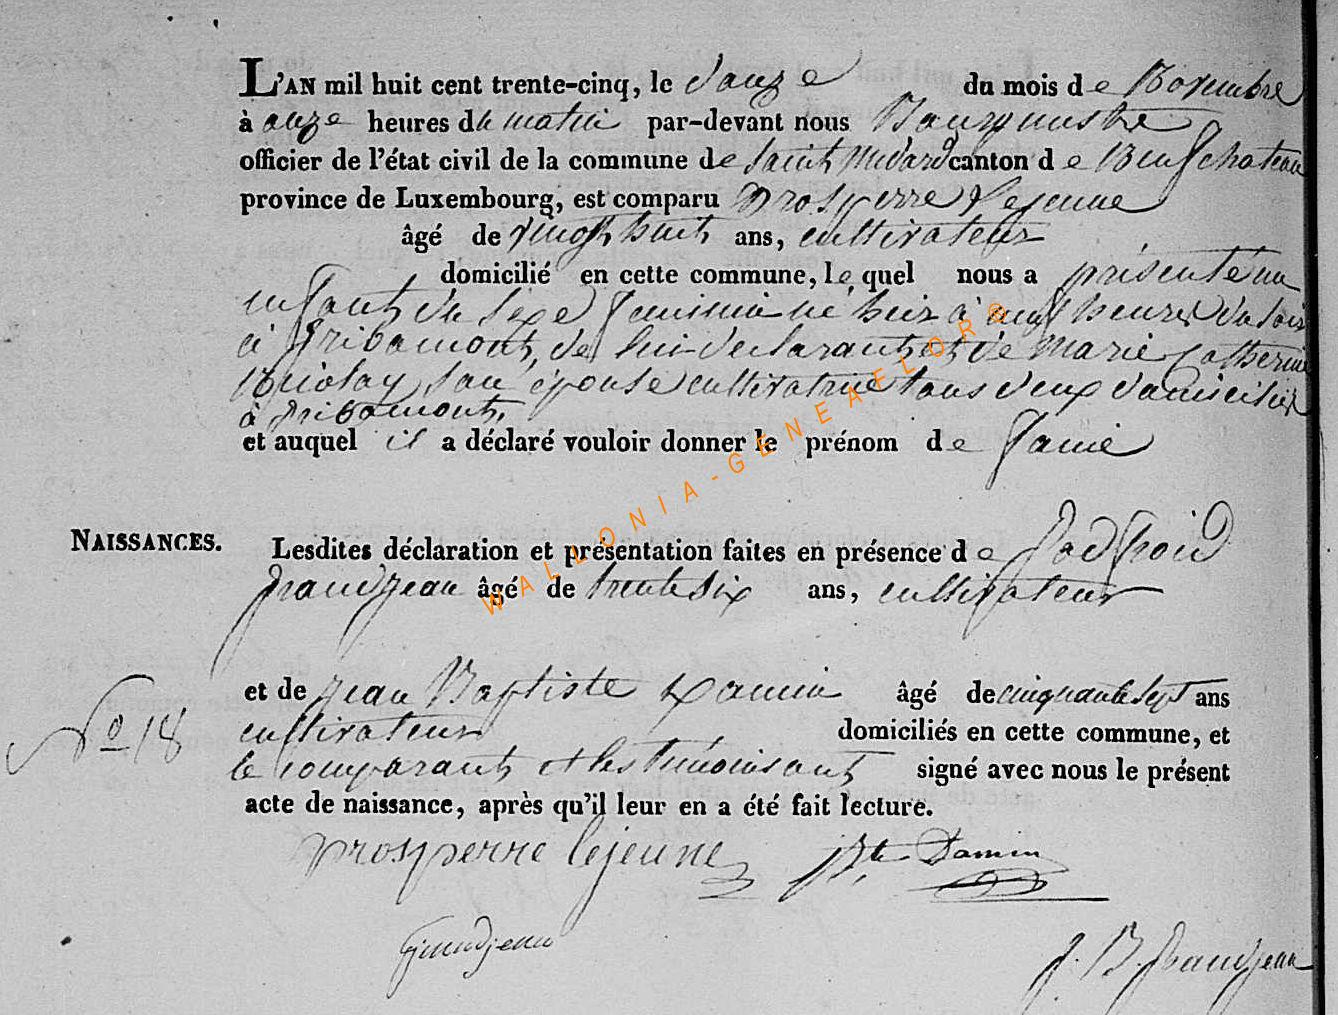 L'AN mil huit cent trente-cinq, le douze du mois de Novembre
à onze heures du matin par-devant nous Bourgmestre
officier de l'état civil de la commune de Saint Médard canton de Neufchateau
province de Luxembourg, est comparu Prosperre Lejeune
âgé de vingt huit ans, cultivateur
domicilié en cette commune, lequel nous a présenté un
enfant du sexe feminin né hier à neuf heures du soir
à Gribomont, de lui déclarant et de Marie Catherine
Nicolay, son épouse cultivatrice tous deux domiciliés
à Gribomont.
et auquel il a déclaré vouloir donner le prénom de
NAISSANCES.
Lesdites déclaration et présentation faites en présence de Godfroid
Grandjean âgé de trente six ans, cultivateur
No 18
et de Jean Baptiste Damin âgé de cinquante sept ans
cultivateur domiciliés en cette commune, et
le comparant et les témoins ont signé avec nous le présent
acte de naissance, après qu'il leur en a été fait lecture.
prosperre lejeune JBte Damin
Grandjean
J. B. Grandjean
WALLONIA-GENEAFLOR®